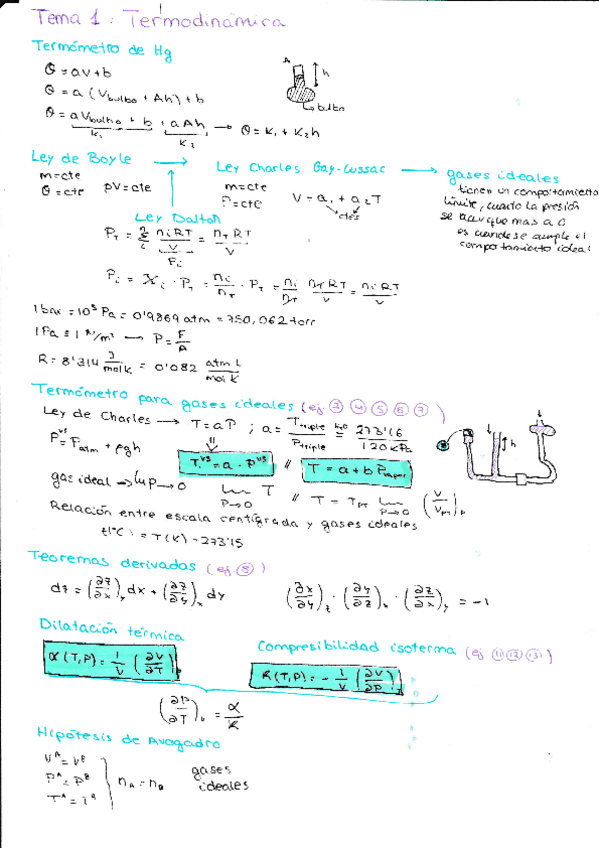 Tema 1: Termodinámica
Termómetro de Hg
θ = av + b
θ = a (Vbulbo + Ah) + b
θ = aVbulbo + b + aAh → θ = K₁ + K₂h
K₁ K₂
A h
bulbo
Ley de Boyle → Ley Charles Gay-Lussac → gases ideales
m = cte
θ = cte
pV = cte
m = cte
P = cte
V = a₁ + a₂T
ctes
tienen un comportamiento
límite, cuanto la presión
se acerque mas a 0
es cuando se cumple el
comportamiento ideal
Ley Dalton
P_T = Σ n_i RT / V = n_T RT / V
P_i
P_i = X_i · P_T = n_i / n_T · P_T = n_i / n_T n_T RT / V = n_i RT / V
1 bar = 10⁵ Pa = 0'9869 atm = 750,062 torr
1 Pa = 1 N/m² → P = F/A
R = 8'314 J / mol K = 0'082 atm L / mol K
Termómetro para gases ideales (ej ③ ④ ⑤ ⑥ ⑦)
Ley de Charles → T = aP ; a = T triple H₂O / P triple = 273'16 / 120 kPa
P^vs = P atm + ρgh
T^vs = a · P^vs // T = a + b P vapor
h
gas ideal → P→0 lim P→0 T // T = T_PT lim P→0 (V / V_PT)_P
Relación entre escala centígrada y gases ideales
t(°C) = T(K) - 273'15
Teoremas derivadas (ej ⑧)
dz = (∂z/∂x)_y dx + (∂z/∂y)_x dy (∂x/∂y)_z · (∂y/∂z)_x · (∂z/∂x)_y = -1
Dilatación térmica
Compresibilidad isoterma (ej ⑪ ⑫ ⑬)
α(T,P) = 1/V (∂V/∂T)_P
K(T,P) = - 1/V (∂V/∂P)_T
(∂P/∂T)_v = α/K
Hipótesis de Avogadro
V^A = V^B
P^A = P^B
T^A = T^B
n_A = n_B
gases
ideales